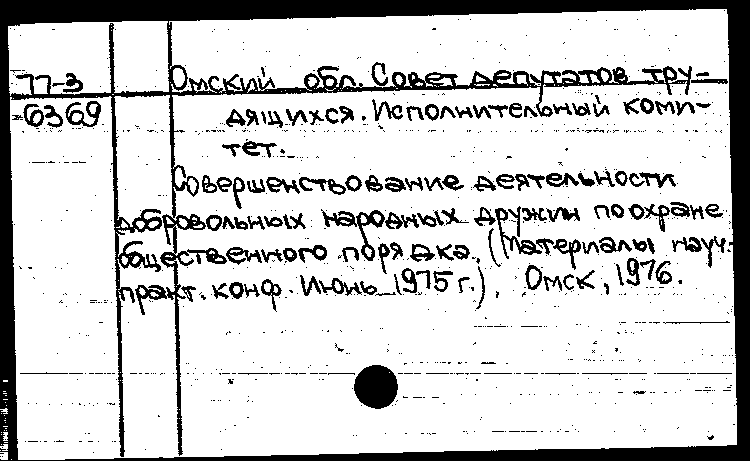 77-3
6369
Омский обл. Совет депутатов тру-
дящихся. Исполнительный коми-
тет.
Совершенствование деятельности
добровольных народных дружин по охране
общественного порядка. (Материалы науч.-
практ. конф. Июнь 1975 г.). Омск, 1976.